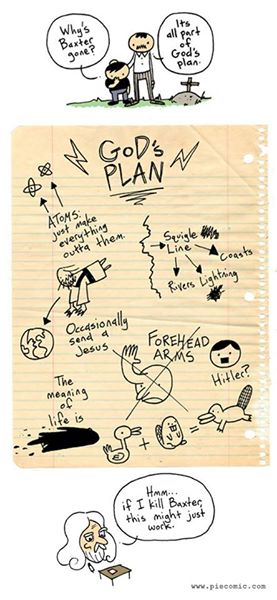 Why's
Baxter
gone?
Its
all part
of
God's
plan.
GOD's
PLAN
ATOMS:
just make
everything
outta them.
Squigle
Line
Coasts
Rivers
Lightning
Occasionally
send a
Jesus
FOREHEAD
ARMS
Hitler?
The
meaning
of
life is
+
=
Hmm...
if I kill Baxter,
this might just
work.
www.piecomic.com